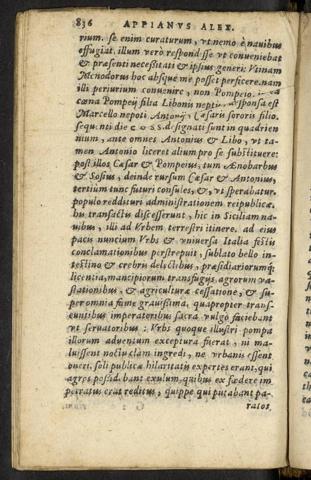 836 APPIANVS ALEX.
rium. se enim curaturum, vt nemo è nauibus
effugiat. illum verò respondisse vt conueniebat
& præsenti necessitati & ipsius generi: Vtinam
Menodorus hoc absque me posset perficere. nam
illi periurium conuenire, non Pompeio. in ea
cœna Pompeij filia Libonis neptis desponsa est
Marcello nepoti Antonij, Cæsaris sororis filio.
sequenti die coss. designati sunt in quadrien
nium, ante omnes Antonius & Libo, vt ta-
men Antonio liceret alium pro se substituere:
post illos Cæsar & Pompeius, tum Ænobarbus
& Sosius, deinde rursum Cæsar & Antonius,
tertium tunc futuri consules, &, vt sperabatur,
populo reddituri administrationem reipublicæ.
his transactis discesserunt, hic in Siciliam na-
uibus, illi ad Vrbem terrestri itinere. ad eius
pacis nuncium Vrbs & vniuersa Italia festis
conclamationibus perstrepuit, sublato bello in-
testino & crebris delectibus, præsidiariorumq;
licentia, mancipiorum transfugijs, agrorum va-
stationibus, & agriculturæ cessatione, & su-
per omnia fame grauissima, quapropter trans-
euntibus imperatoribus sacra vulgò faciebant
vt seruatoribus: Vrbs quoque illustri pompa
illorum aduentum exceptura fuerat, ni ma-
luissent noctu clam ingredi, ne vrbanis essent
oneri. soli publicæ hilaritatis expertes erant, qui
agros possidebant exulum, quibus ex fœdere im
petratus erat reditus, quippe qui putabant pa-
ratos